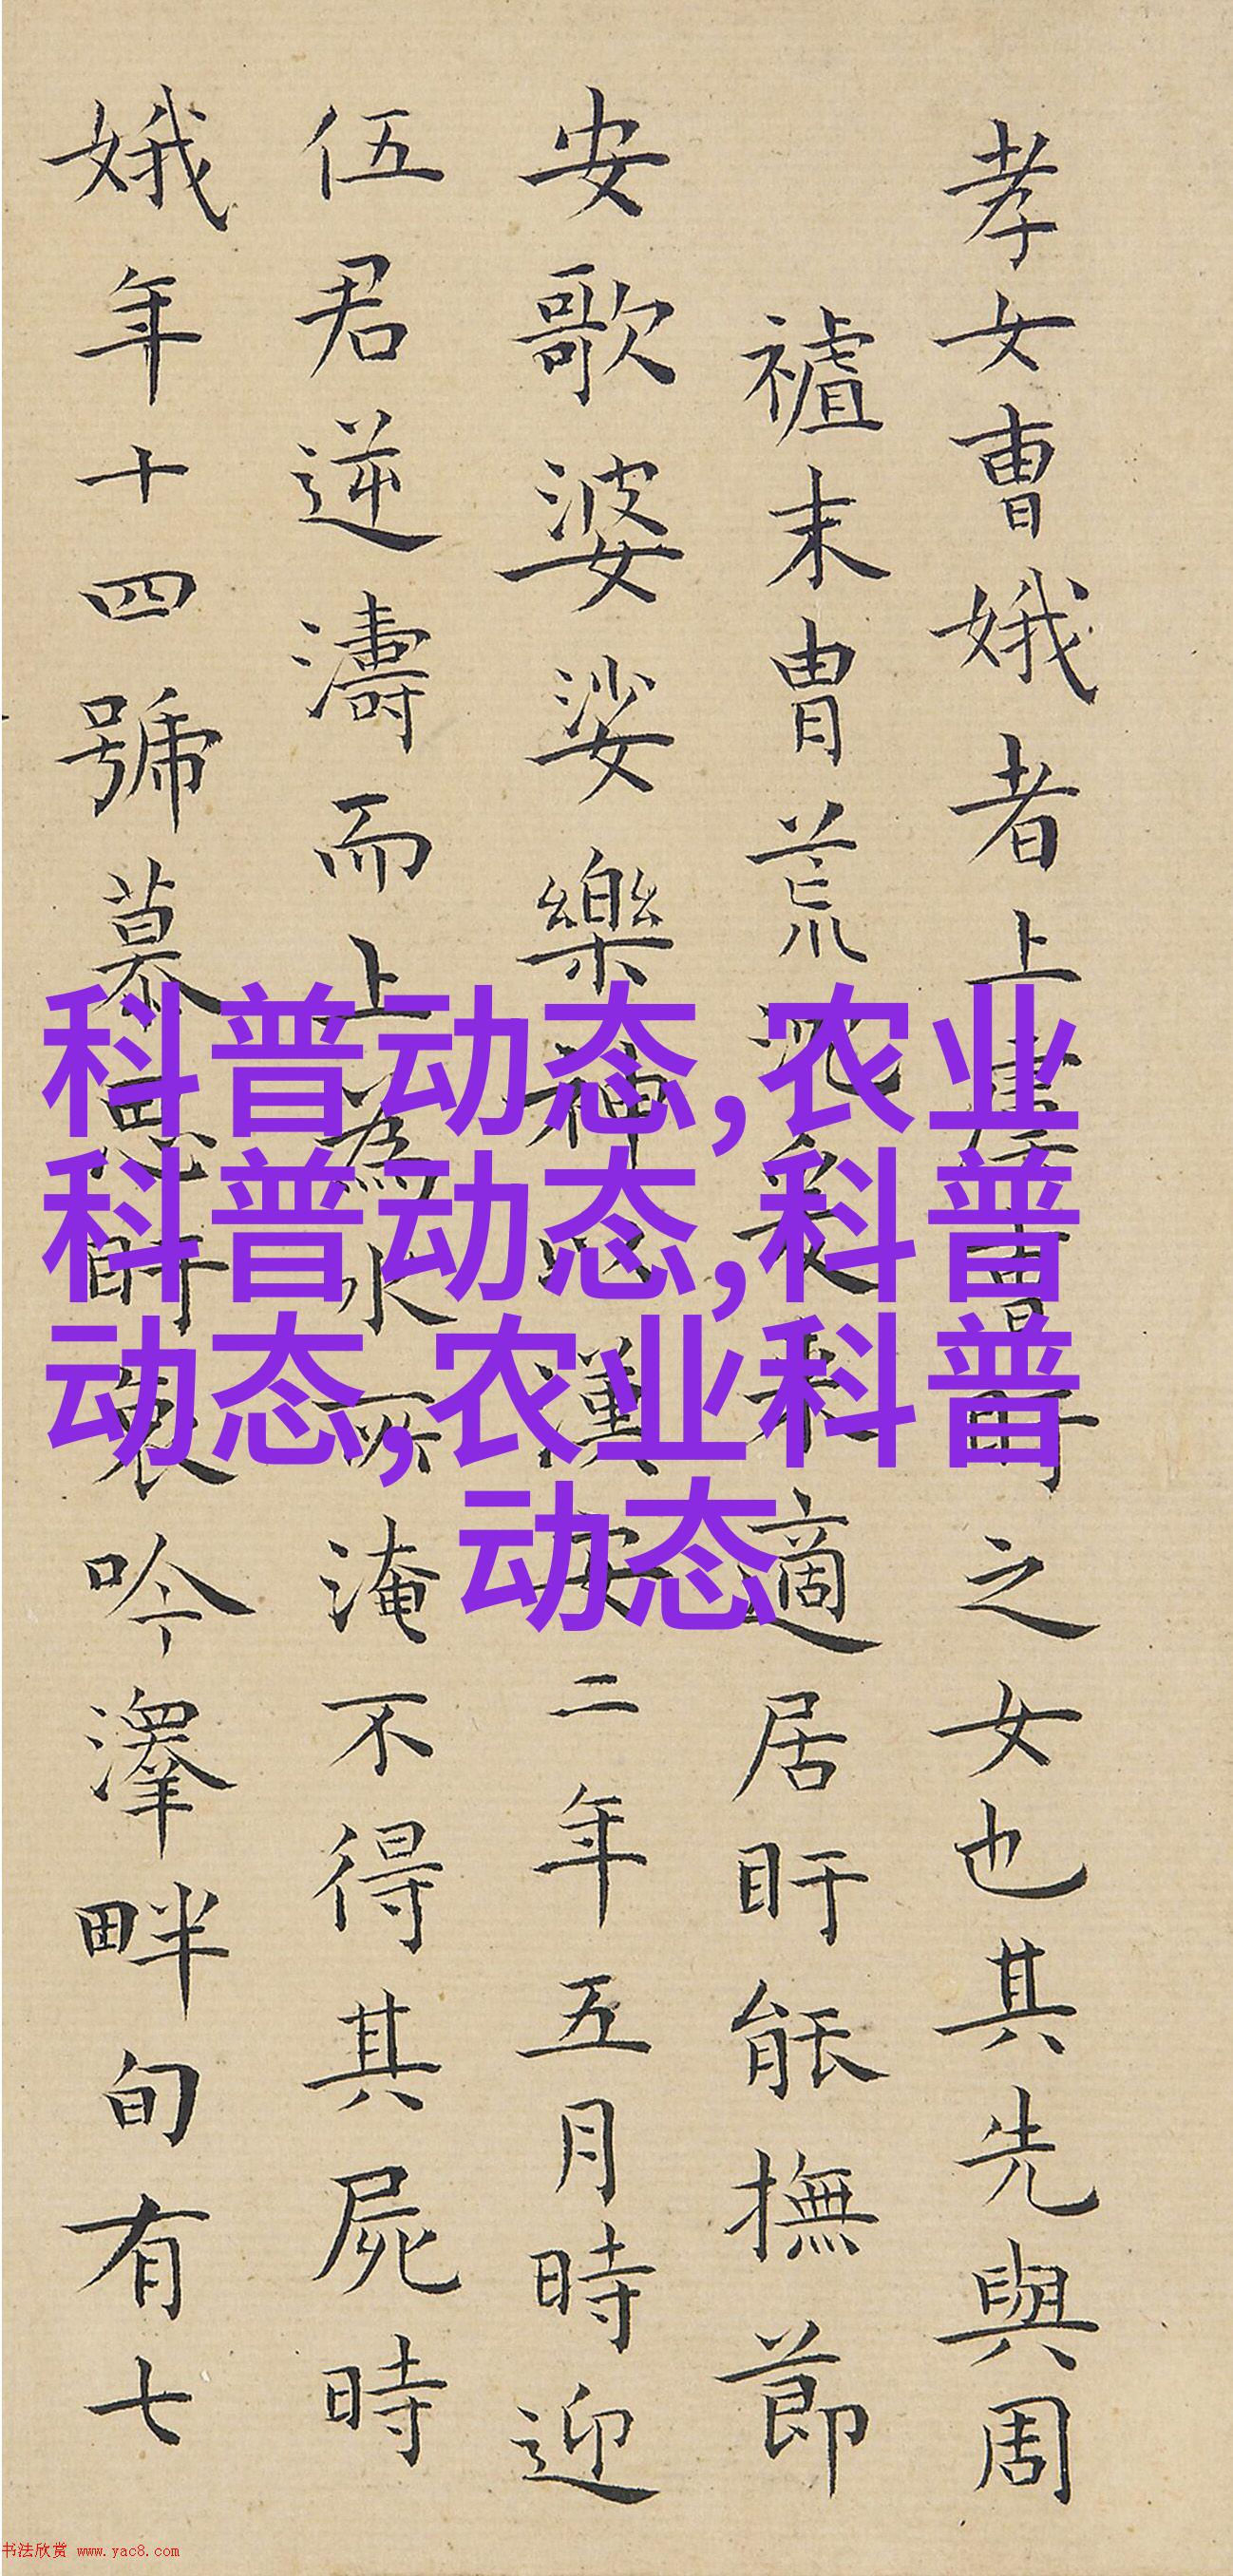 孝女曹娥者上虞曹盱之女也其先與周
禇末胄荒沉爰來適居盱能撫節
安歌婆娑樂神以漢安二年五月時迎
伍君逆濤而上為水所淹不得其屍時
娥年十四號慕思盱哀吟澤畔旬有七
科普动态,农业
科普动态,科普
动态,农业科普
动态
书法欣赏 www.yac8.com